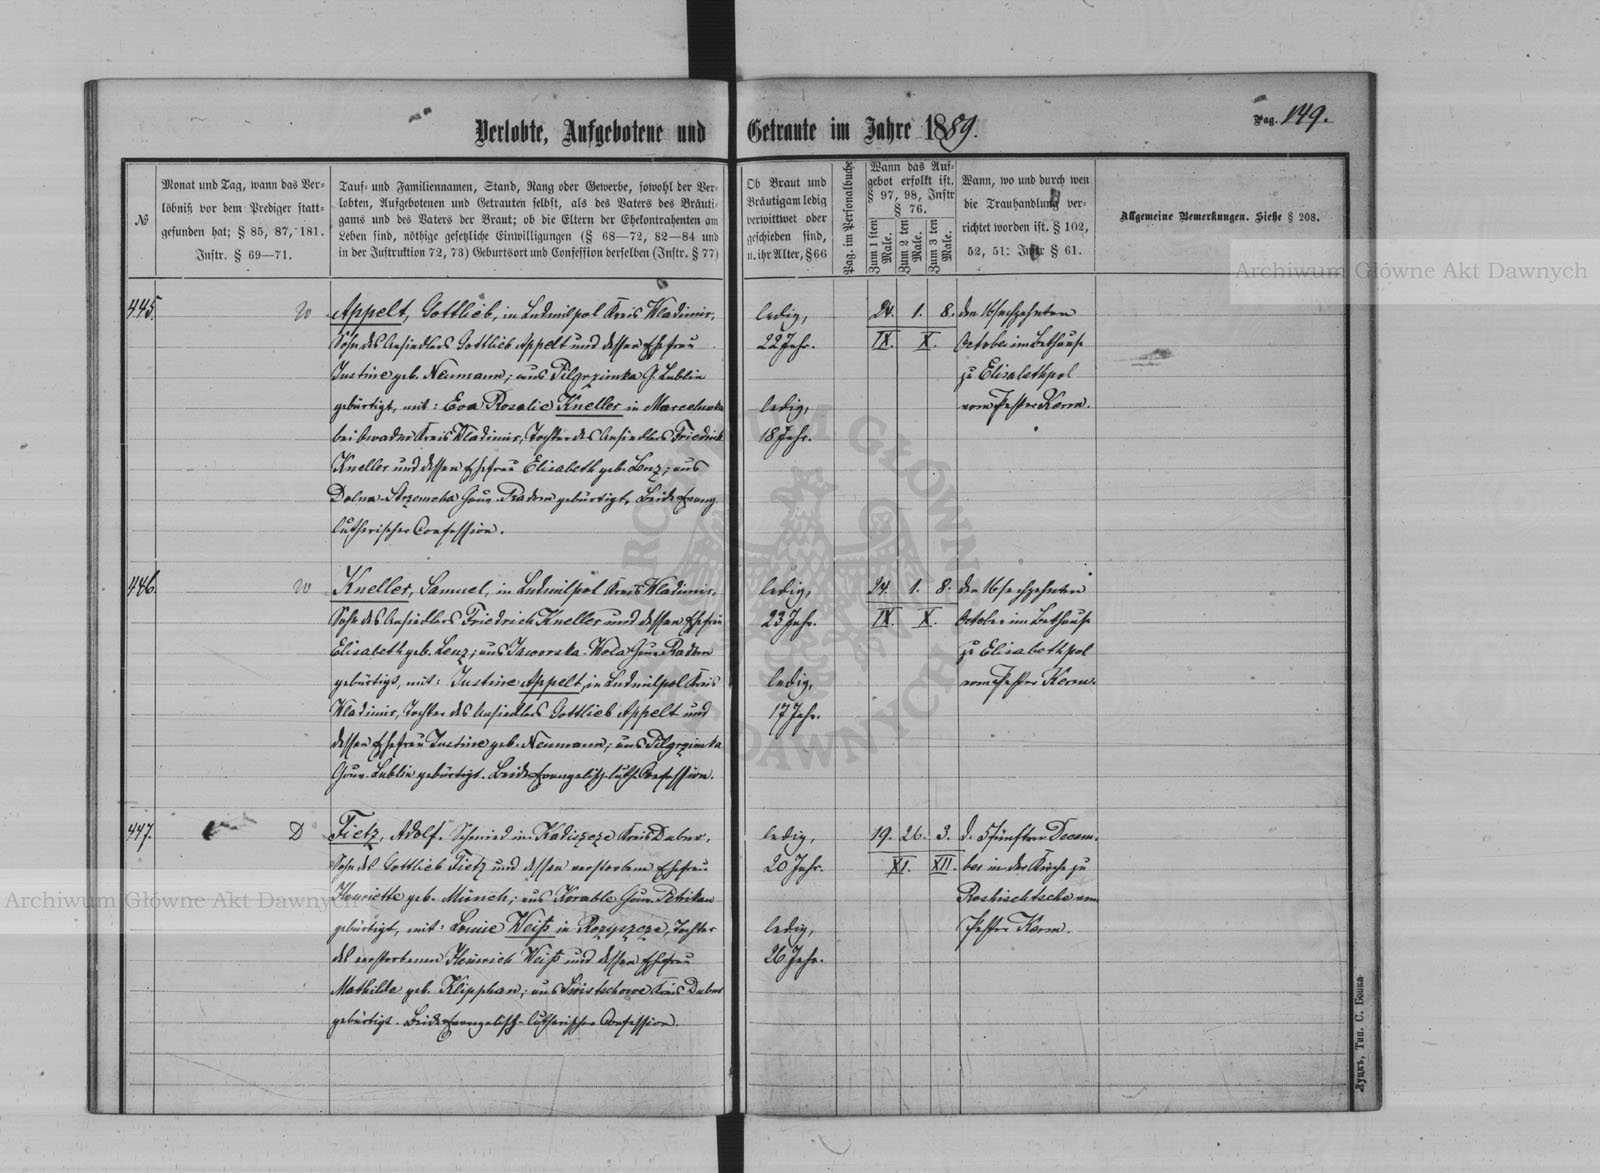 Verlobte, Aufgebotene und Getraute im Jahre 1889.
Pag. 149.
№
Monat und Tag, wann das Ver-
löbniß vor dem Prediger statt-
gefunden hat; § 85, 87, 181.
Instr. § 69—71.
Tauf- und Familiennamen, Stand, Rang oder Gewerbe, sowohl der Ver-
lobten, Aufgebotenen und Getrauten selbst, als des Vaters des Bräuti-
gams und des Vaters der Braut; ob die Eltern der Ehekontrahenten am
Leben sind, nöthige gesetzliche Einwilligungen (§ 68—72, 82—84 und
in der Instruktion 72, 73) Geburtsort und Confession derselben (Instr. § 77)
Ob Braut und
Bräutigam ledig
verwittwet oder
geschieden sind,
u. ihr Alter, § 66
Pag. im Personalbuche
Wann das Auf-
gebot erfolkt ist.
§ 97, 98, Instr
§ 76.
Zum 1 sten
Male.
Zum 2 ten
Male.
Zum 3 ten
Male.
Wann, wo und durch wen
die Trauhandlung ver-
richtet worden ist. § 102,
52, 51: Instr § 61.
Allgemeine Bemerkungen. Siehe § 208.
445.
W
Appelt, Gottlieb, in Ludmilpol Kreis Wladimir,
Sohn des Ansiedlers Gottlieb Appelt und dessen Ehefrau
Justine geb. Neumann; aus Pilgrzimka G. Lublin
gebürtig, mit: Eva Rosalie Kneller in Marceluwka
bei Owadno Kreis Wladimir, Tochter des Ansiedlers Friedrich
Kneller und dessen Ehefrau Elisabeth geb. Lenz; aus
Dolna-Strzemcha Gouv. Radom gebürtigt, Beide Evang.
lutherischer Confession.
ledig,
22 Jahr.
ledig,
18 Jahr.
24. 1. 8.
IX. X.
den 16 sechzehnten
October im Bethause
zu Elisabethpol
vom Pastor Kerm.
446.
W
Kneller, Samuel, in Ludmilpol Kreis Wladimir,
Sohn des Ansiedlers Friedrich Kneller und dessen Ehefrau
Elisabeth geb. Lenz; aus Jaworska-Wola Gouv. Radom
gebürtigt, mit: Justine Appelt, in Ludmilpol Kreis
Wladimir, Tochter des Ansiedlers Gottlieb Appelt und
dessen Ehefrau Justine geb. Neumann; aus Pilgrzimka
Gouv. Lublin gebürtigt. Beide Evangelisch-luth. Confession.
ledig,
23 Jahr.
ledig,
17 Jahr.
24. 1. 8.
IX. X.
den 16 sechzehnten
October im Bethause
zu Elisabethpol
vom Pastor Kerm.
447.
D
Tietz, Adolf. Schmied in Kadiszcze Kreis Dubno,
Sohn des Gottlieb Tietz und dessen verstorbene Ehefrau
Henriette geb. Münch; aus Korable Gouv. Petrikau
gebürtigt, mit: Louise Weiß in Rozyszcze, Tochter
des verstorbenen Heinrich Weiß und dessen Ehefrau
Mathilde geb. Klipphan; aus Swistschowe Kreis Dubno
gebürtigt. Beide Evangelisch-lutherischer Confession.
ledig,
20 Jahr.
ledig,
26 Jahr.
19. 26. 3.
XI. XII.
d. 5 fünften Decem-
ber in der Kirche zu
Roshischtsche vom
Pastor Kerm.
Луцкъ, Тип. С. Бонка
Archiwum Główne Akt Dawnych
Archiwum Główne Akt Dawnych
ARCHIWUM GŁÓWNE AKT DAWNYCH